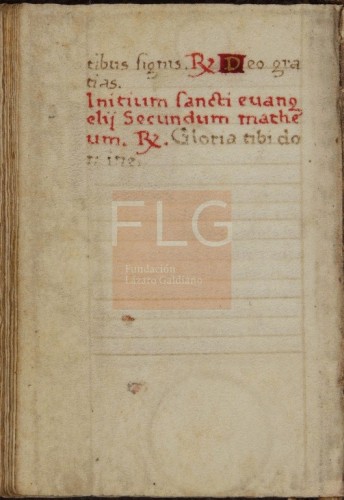 tibus signis. ℟ Deo gra
tias.
Initium sancti euang
elij Secundum mathe
um. ℟. Gloria tibi do
mine
FLG
Fundación
Lázaro Galdiano